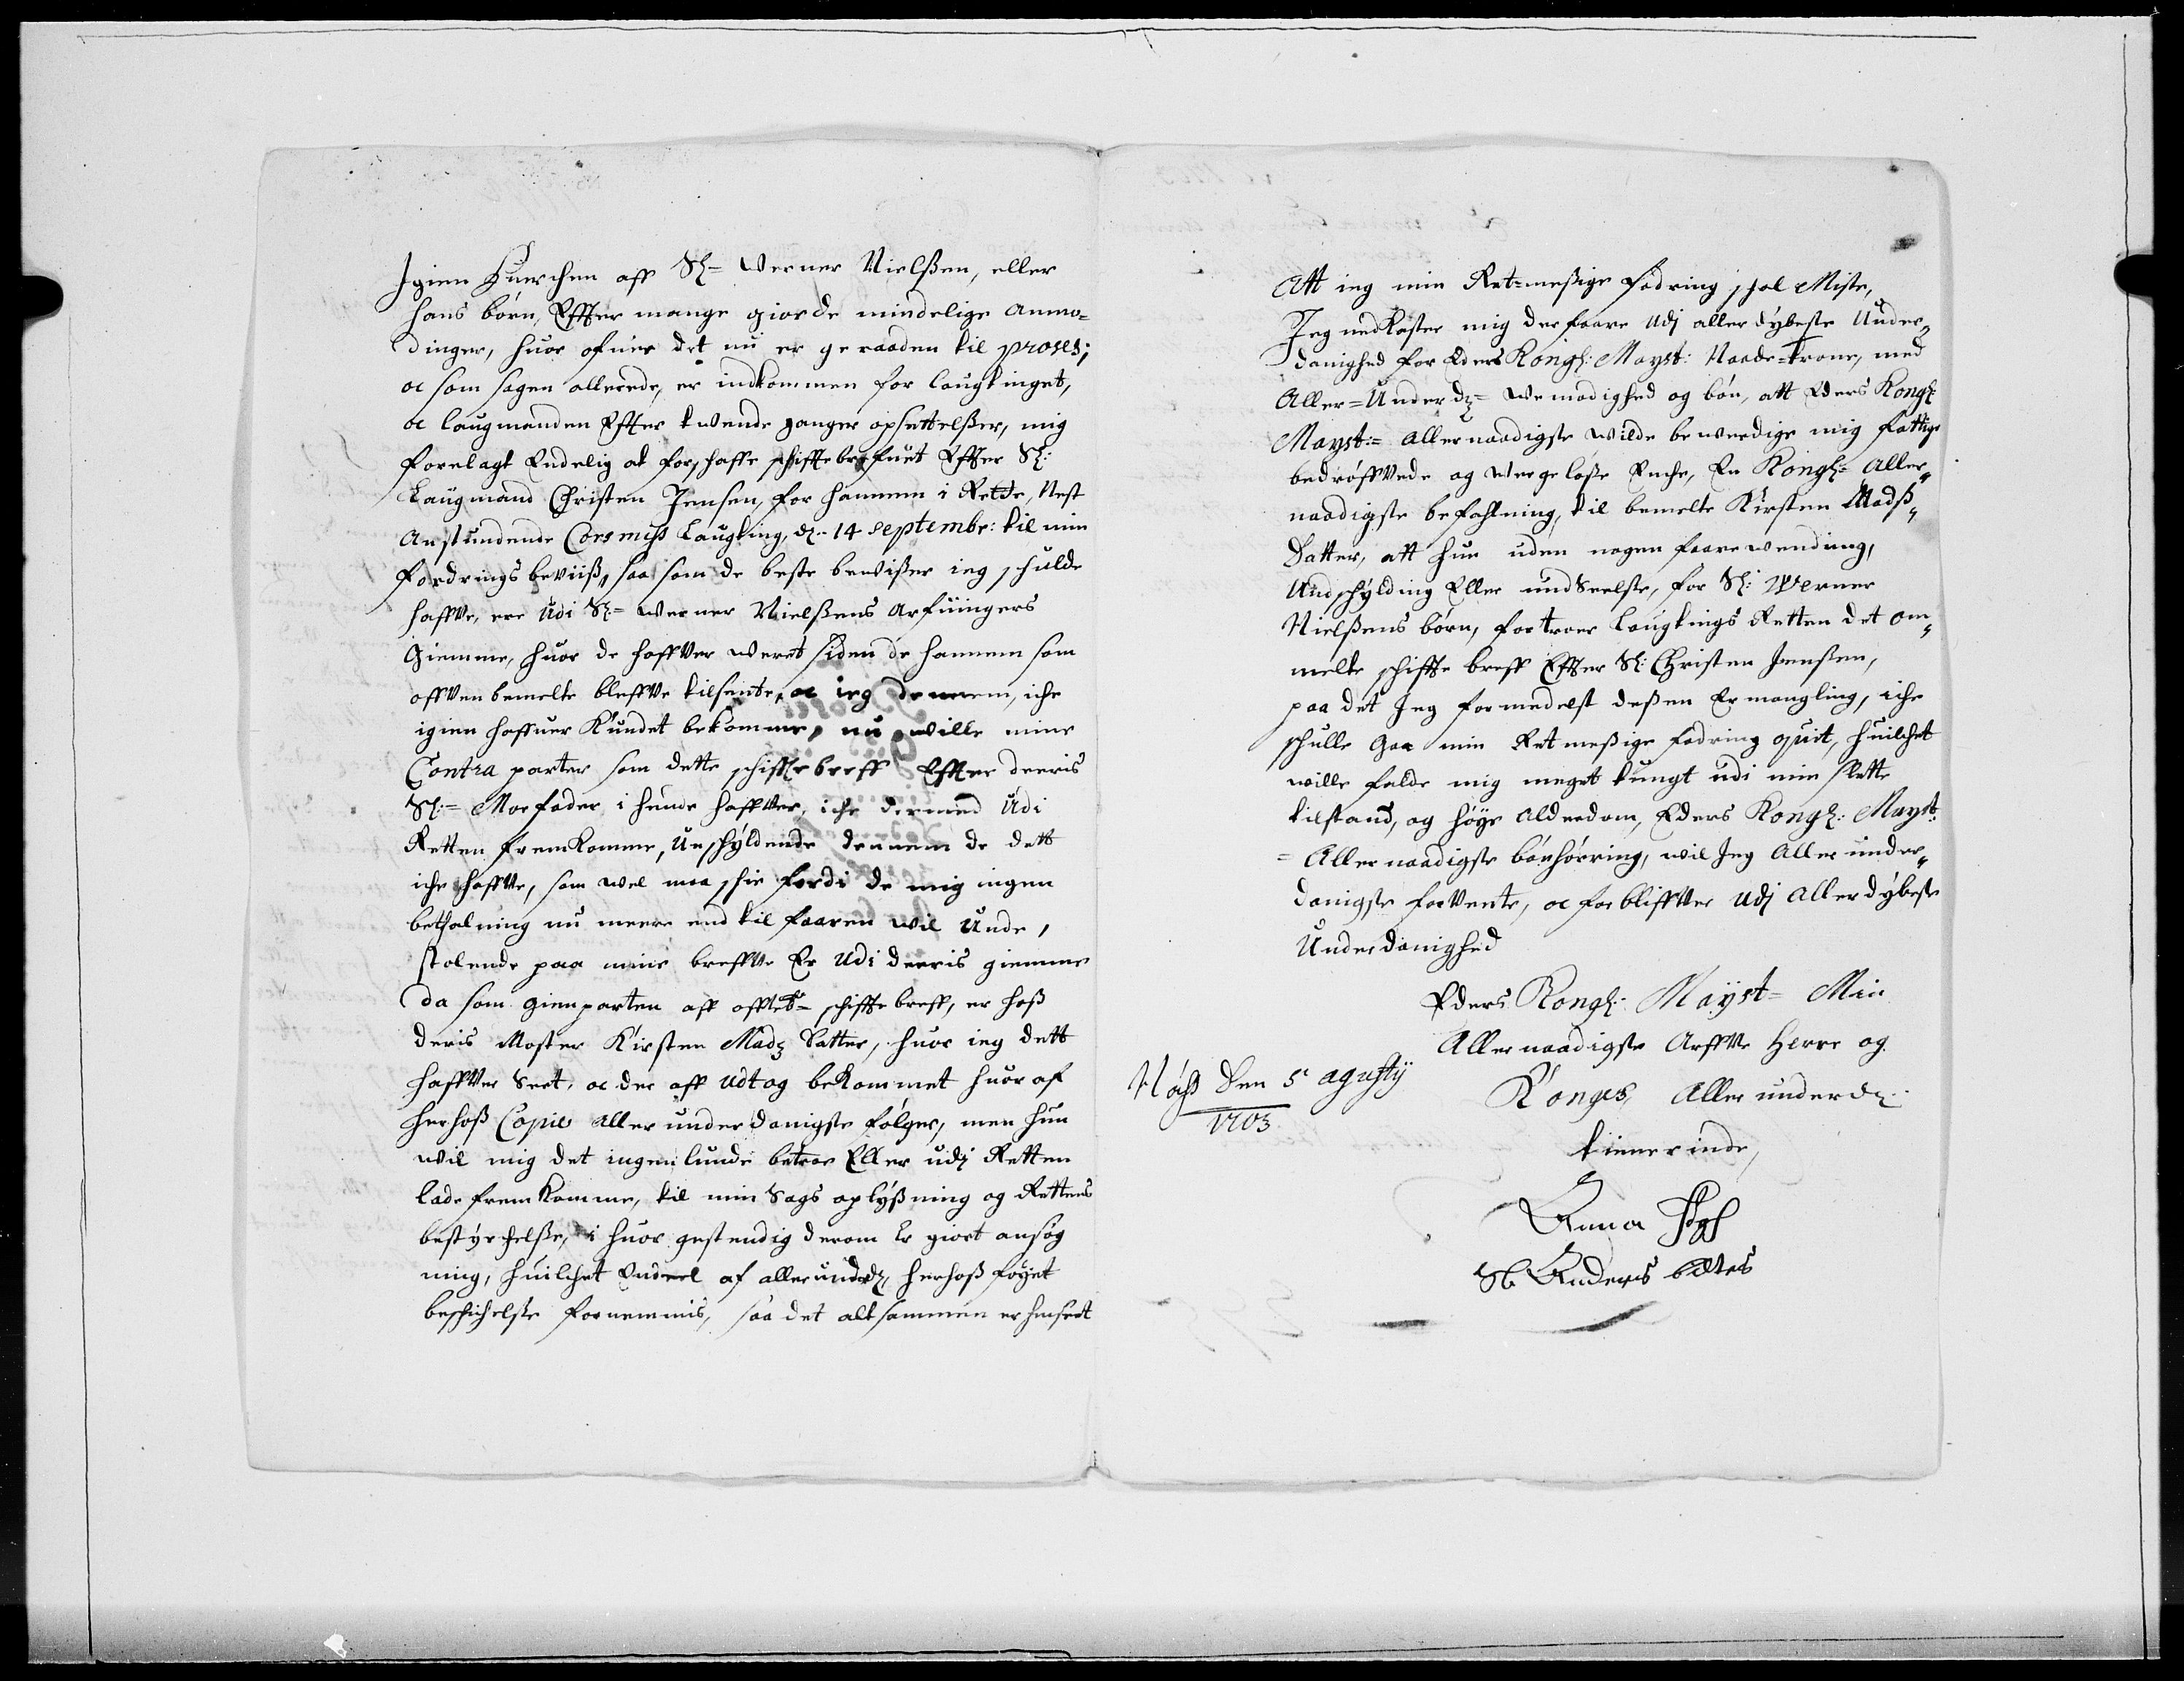 Igien Huerchen aff Sl= Werner Nielßen, eller
hans børn, Effter mange giorde mindelige anmo=
dinger, huor ofuer det nu er geraaden til proses;
oc som sagen allerede, er indkommen for laugtinget,
oc laugmanden Effter twende ganger opsettelßer, mig
forelagt Endelig at forschaffe schifftebrefuet Effter Sl:
Laugmand Christen Jensen, for hannem i Rette, Nest
Anstundende Corsmiss Laugting, d. 14 Septembr: til min
fordrings beviiß, saa som de beste bevißer ieg schulde
haffve, ere udi Sl= Werner Nielßens arfuingers
Giemme, huor de haffver weret siden de hannem som
offven bemelte bleffve tilsente, oc ieg dennem, iche
igien haffuer kundet bekomme, nu wille mine
Contra parter som dette schifftebreff Effter deeris
Sl:= Morfader i hende haffver, iche dermed udi
Retten fremkomme, Unschyldende dennem de dett
iche haffve, som wel maa schie fordi de mig ingen
betalning nu meere end til faaren wil unde,
stolende paa mine breffve Er udi deeris giemme
da som gienparten aff offtbte schifftebreff, er hoß
deris Moster Kirsten Mads Datter, huor ieg dett
haffver Seet, oc der aff udtog bekommet huor af
herhoß Copie allerunderdanigste følger, men hun
wil mig det ingenlunde betroe Eller udj Retten
lade fremkomme, til min Sags oplysßning og Rettens
bestyrchelße, i huor gestendig derom Er giort ansøg
ning, huilchet Endeel af allerunderd: herhoß føyet
beschichelße fornemmis, saa det altsammen er henseet
Att ieg min Ret=meßige fodring schal Miste,
Jeg nedkaster mig derfaare udj allerdybeste Under=
danighed for Eders Kongl: Mayst: Naade=trone, med
Aller=Underd:= We modighed og bøn, att Eders Kongl:
Mayst:= allernaadigste wilde bewerdige mig fattige
bedrøffvede og wergeløße Enche, En Kongl= Aller=
naadigste befahlning, til bemelte Kirsten Madß=
Datter, att hun uden nogen faarewending,
Undschylding Eller undSeelße, for Sl: Werner
Nielßens børn, for troer laugtings Retten det om=
melte schiffte breff Effter Sl: Christen Jenßen,
paa det Jeg formedelst deßen Ermangling, iche
schulle gaa min Retmeßige fodring qvit, huilchet
wille falde mig meget tungt udi min slette
tilstand, og høye alderdom, Eders Kongl: Mayst:
= Allernaadigste bønhørring, wil Jeg Allerunder=
danigste forvente, oc forbliffver udj allerdybeste
Underdanighed
Eders Kongl: Mayst= Min
Allernaadigste Arffve Herre og
Konges, Allerunderd:
tiennerinde,
Anna
Sl Anders
den 5 agustij
1703